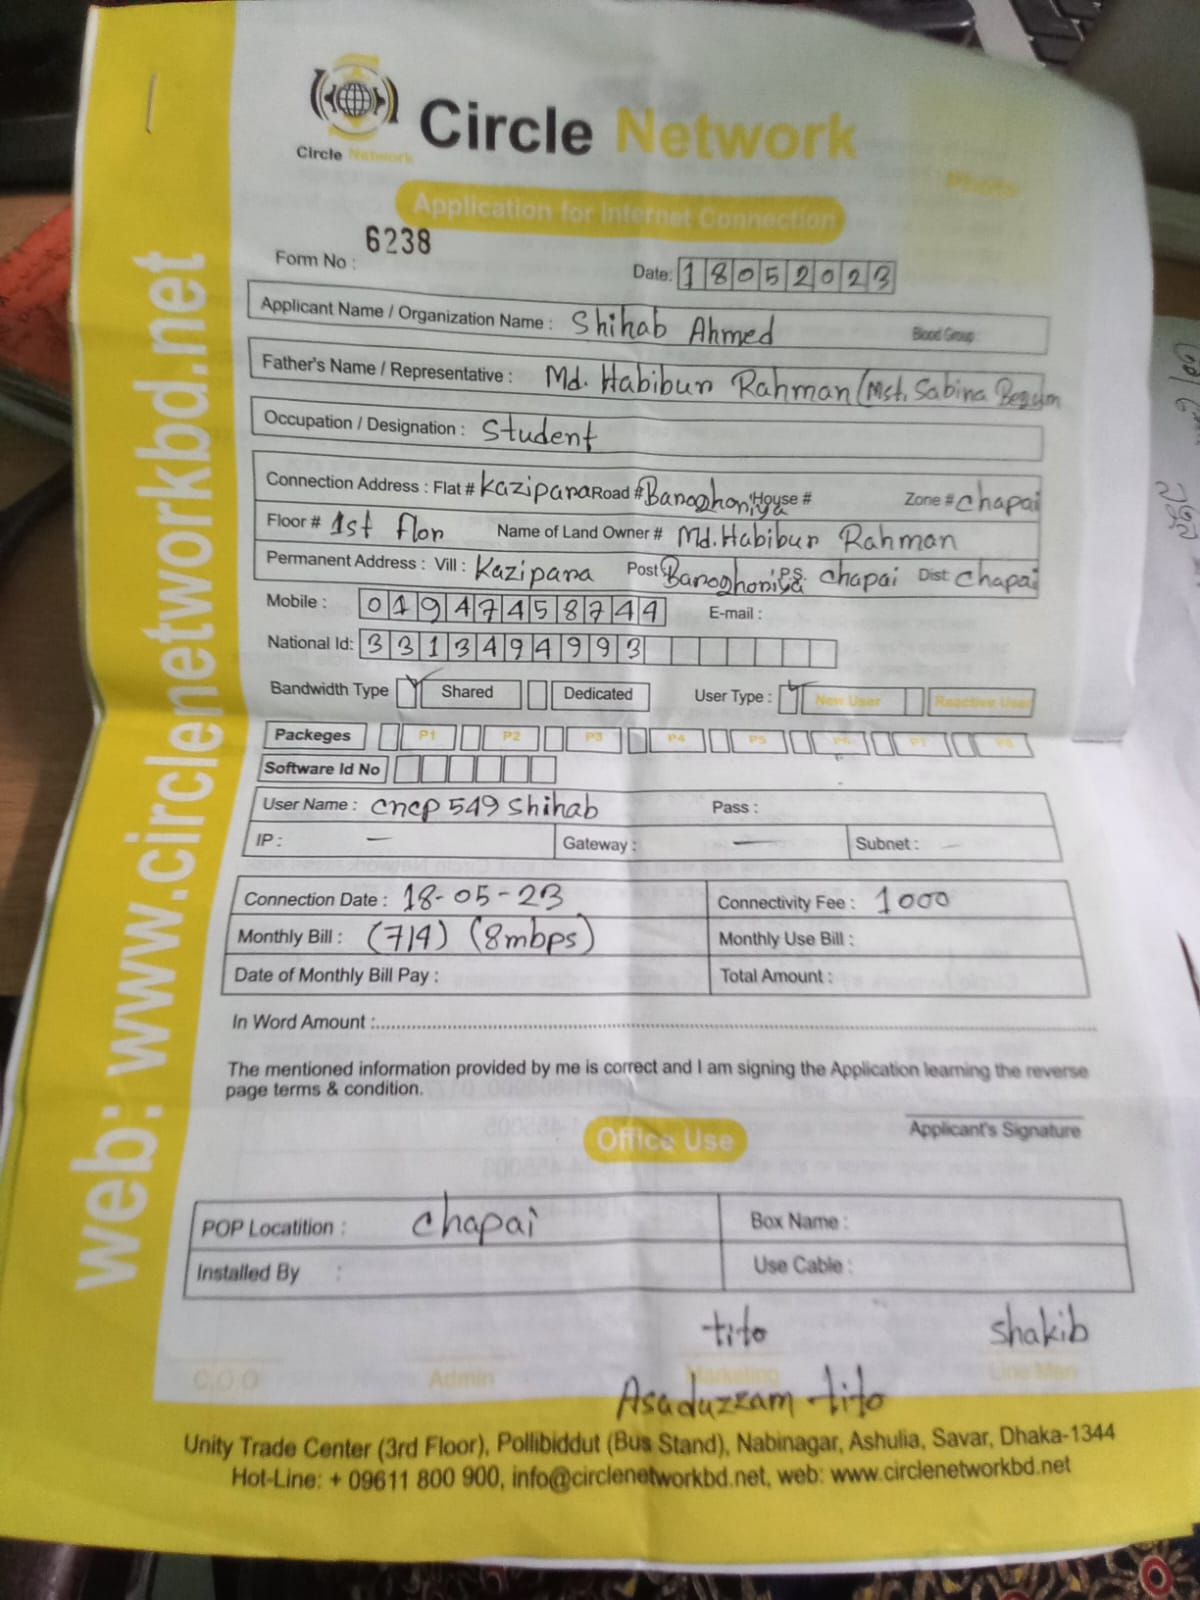 Circle Network
Circle Network
Photo
Application for Internet Connection
Form No : 6238
Date: 18052023
Applicant Name / Organization Name : Shihab Ahmed Blood Group
Father's Name / Representative : Md. Habibur Rahman (Mst. Sabina Begum
Occupation / Designation : Student
Connection Address : Flat # Kazipara Road # Baroghoniya House # Zone # Chapai
Floor # 1st flor Name of Land Owner # Md. Habibur Rahman
Permanent Address : Vill : Kazipara Post: Baroghoniya P.S. Chapai Dist: Chapai
Mobile : 01947458744 E-mail :
National Id: 3313494993
Bandwidth Type Shared Dedicated User Type : New User Reactive User
Packeges P1 P2 P3 P4 P5 P6 P7 P8
Software Id No
User Name : cncp 549 Shihab Pass :
IP : — Gateway : — Subnet : —
Connection Date : 18-05-23 Connectivity Fee : 1000
Monthly Bill : (714) (8mbps) Monthly Use Bill :
Date of Monthly Bill Pay : Total Amount :
In Word Amount :
The mentioned information provided by me is correct and I am signing the Application learning the reverse
page terms & condition.
Applicant's Signature
Office Use
POP Locatition : Chapai Box Name :
Installed By : Use Cable :
tito shakib
C.O.O Admin Marketing Line Man
Asaduzzam tito
Unity Trade Center (3rd Floor), Pollibiddut (Bus Stand), Nabinagar, Ashulia, Savar, Dhaka-1344
Hot-Line: + 09611 800 900, info@circlenetworkbd.net, web: www.circlenetworkbd.net
web: www.circlenetworkbd.net